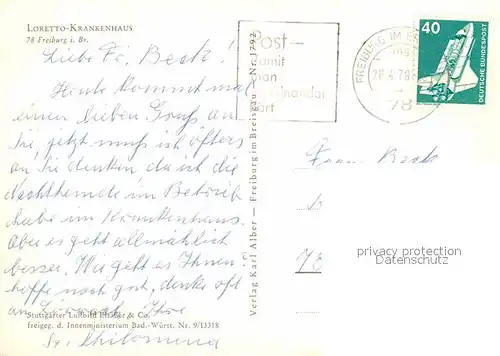 LORETTO-KRANKENHAUS
78 Freiburg i. Br.
Liebe Fr. Beck!
Heute kommt mal
einen lieben Gruß an
Sie, jetzt muß ich öfters
an Sie denken da ich die
Nachthemde im Betrieb
habe im Krankenhaus.
Aber es geht allmählich
besser. Wie geht es Ihnen?
hoffe noch gut, denke oft
an Ihre
Sr. Philomena
Stuttgarter Luftbild Elsäßer & Co.
freigeg. d. Innenministerium Bad.-Württ. Nr. 9/13318
Verlag Karl Alber — Freiburg im Breisgau — Nr. 1792
Post—
damit
man
einander
hört
FREIBURG IM
78
40
DEUTSCHE BUNDESPOST
Frau Beck
78
privacy protection
Datenschutz